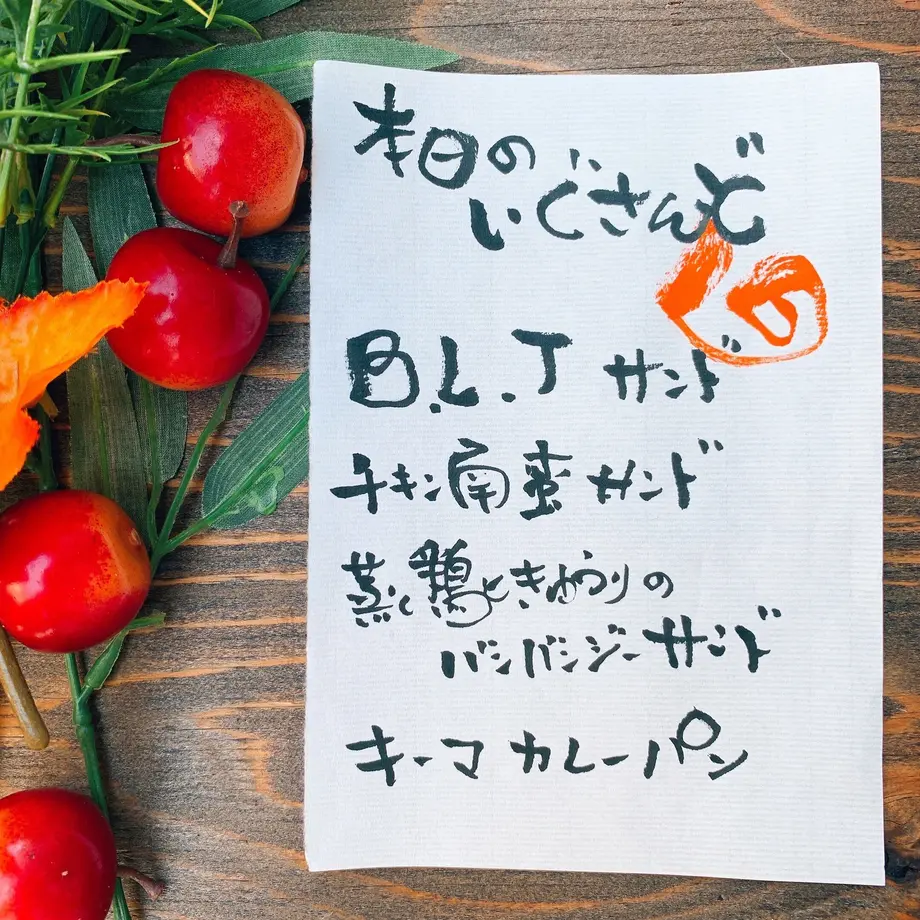 本日の
いぐさんど
B.L.Tサンド
チキン南蛮サンド
蒸し鶏ときゅうりの
バンバンジーサンド
キーマカレーパン